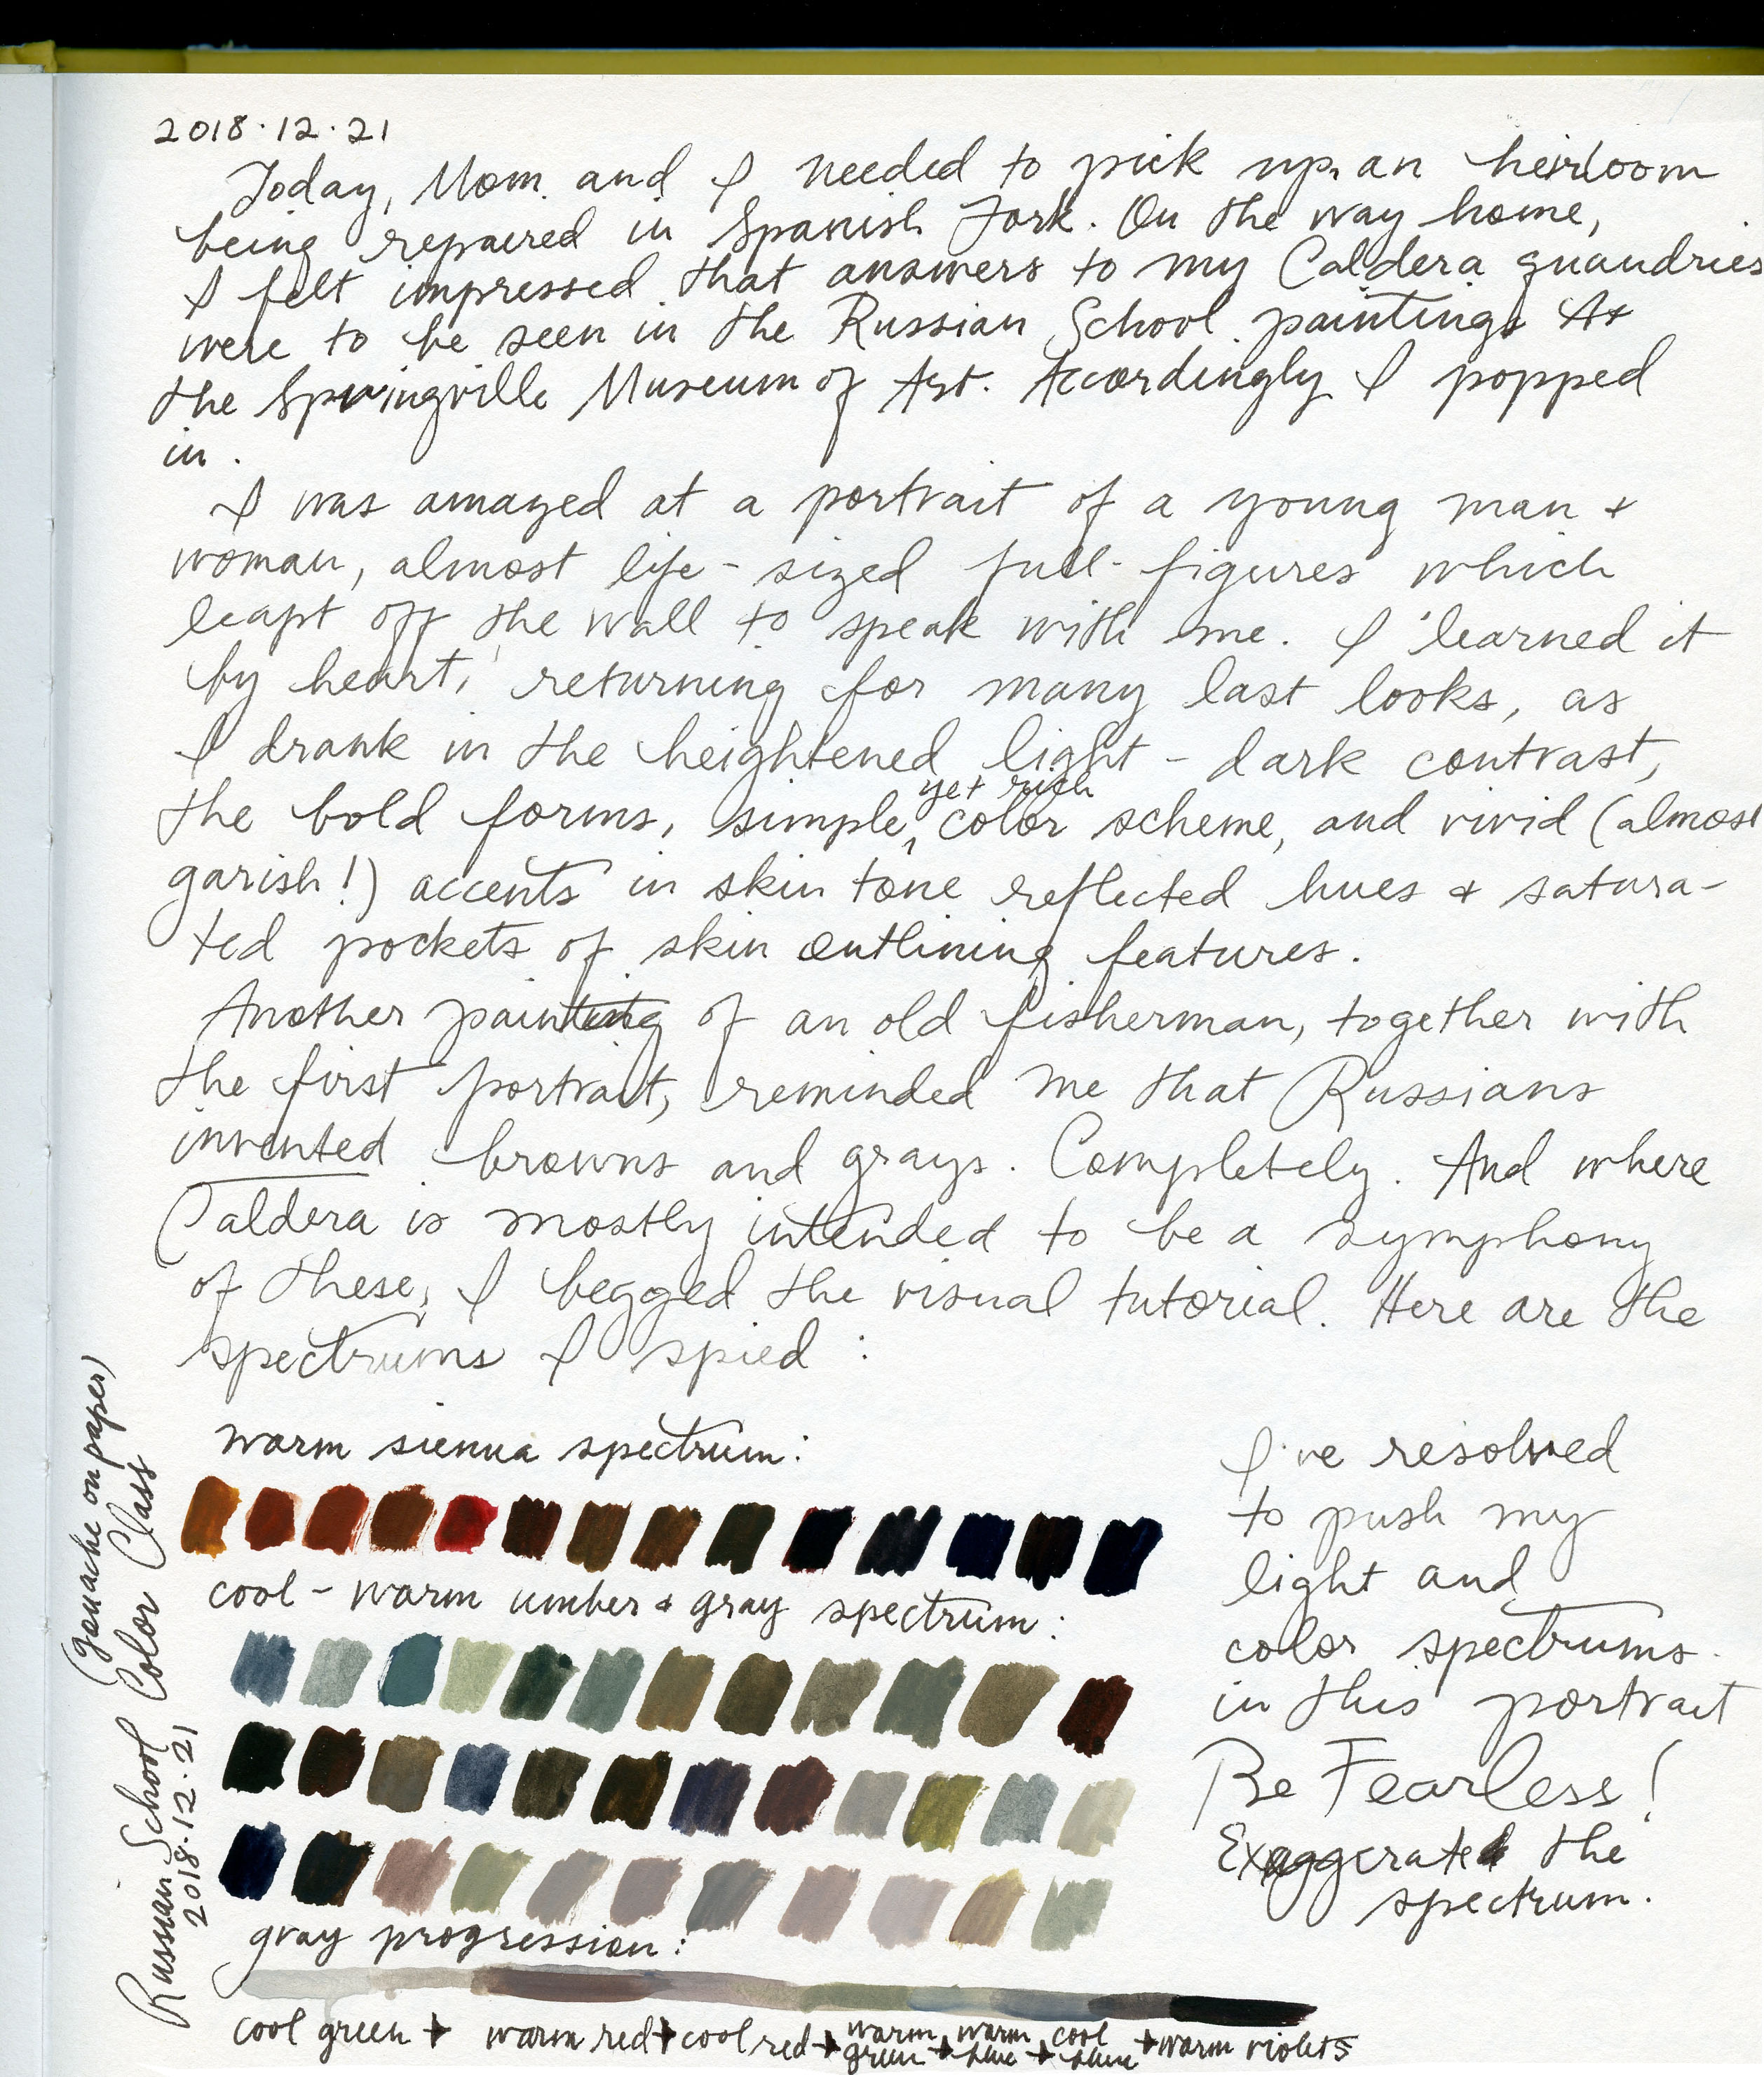 2018.12.21
Today, Mom and I needed to pick up an heirloom
being repaired in Spanish Fork. On the way home,
I felt impressed that answers to my Caldera quandries
were to be seen in the Russian School paintings At
the Springville Museum of Art. Accordingly I popped
in.
I was amazed at a portrait of a young man &
woman, almost life-sized full-figures which
leapt off the wall to speak with me. I learned it
by heart, returning for many last looks, as
I drank in the heightened light-dark contrast,
the bold forms, simple, yet rich color scheme, and vivid (almost
garish!) accents in skin tone reflected hues & satura-
ted pockets of skin outlining features.
Another painting of an old fisherman, together with
the first portrait, reminded me that Russians
invented browns and grays. Completely. And where
Caldera is mostly intended to be a symphony
of these, I begged the visual tutorial. Here are the
spectrums I spied:
warm sienna spectrum:
cool-warm umber & gray spectrum:
gray progression:
cool green → warm red → cool red → warm green → warm blue → cool blue → warm violets
I've resolved
to push my
light and
color spectrums
in this portrait
Be Fearless!
Exaggerate the
spectrum.
Russian School Color Class
2018.12.21
(gouache on paper)